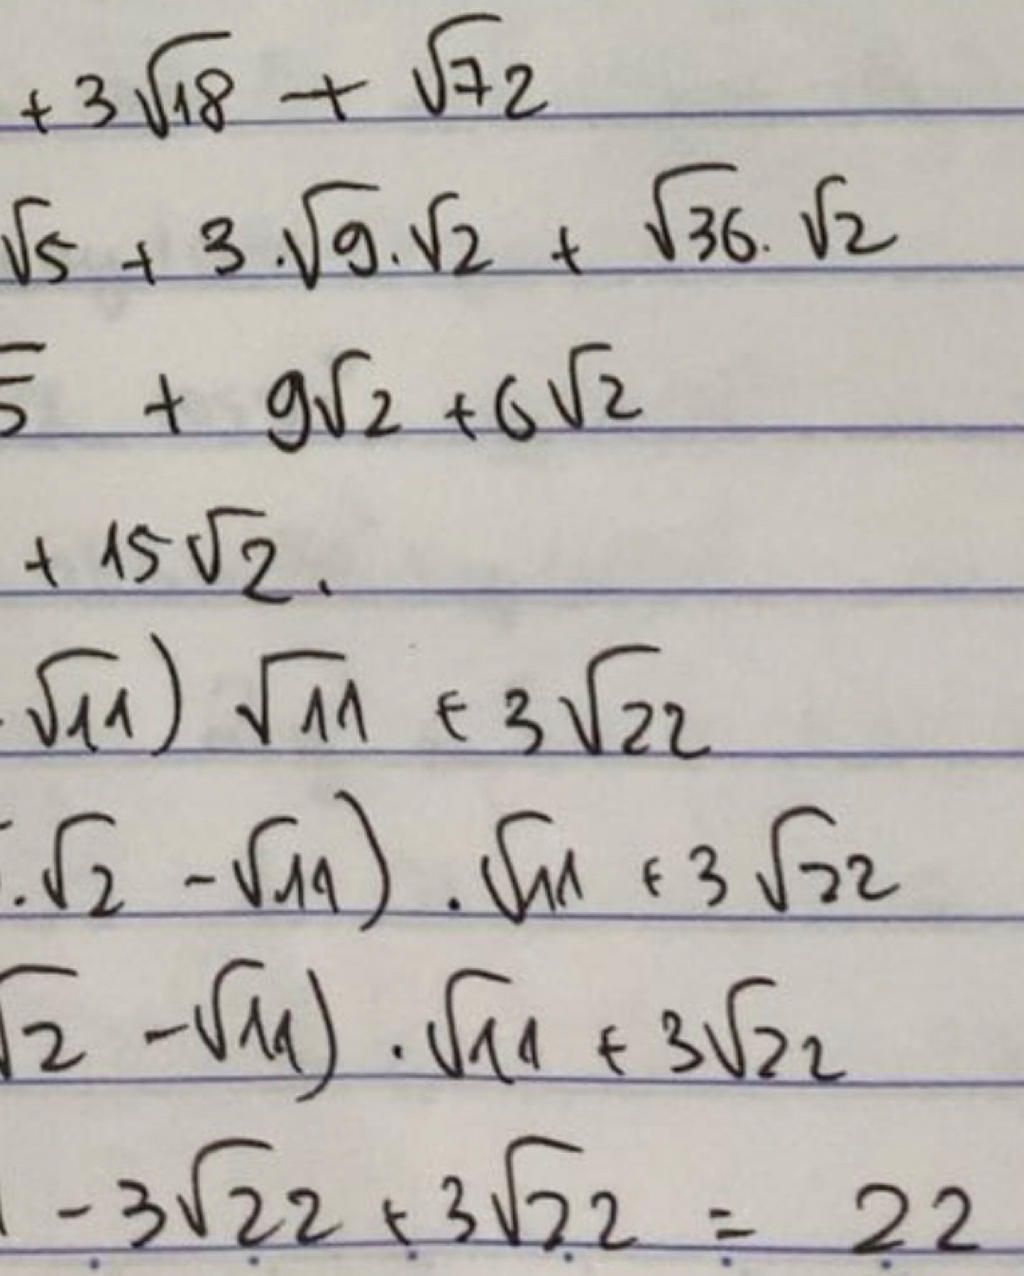 + 3√18 + √72
√5 + 3.√9.√2 + √36.√2
5 + 9√2 + 6√2
+ 15√2.
√11) √11 + 3√22
.√2 - √11) . √11 + 3√22
√2 - √11) . √11 + 3√22
- 3√22 + 3√22 = 22